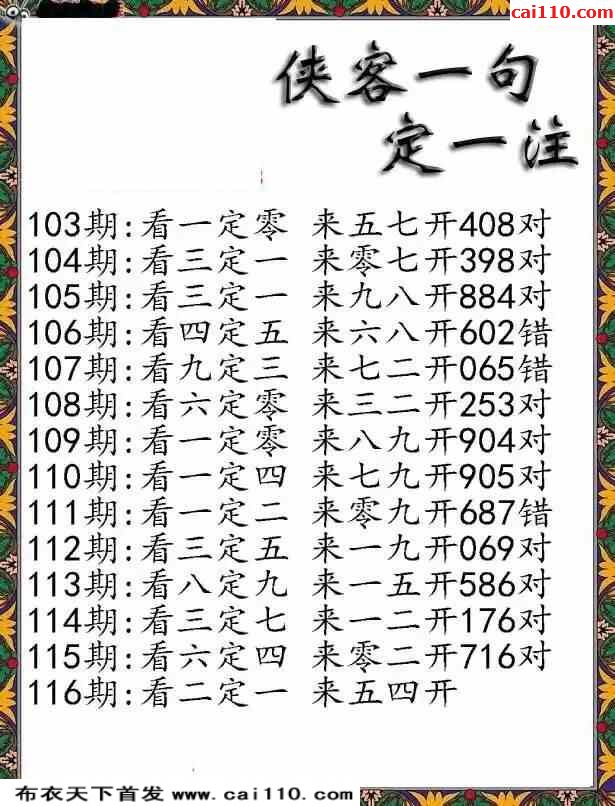 cai110.com
侠客一句
定一注
103期:看一定零 来五七开408对
104期:看三定一 来零七开398对
105期:看三定一 来九八开884对
106期:看四定五 来六八开602错
107期:看九定三 来七二开065错
108期:看六定零 来三二开253对
109期:看一定零 来八九开904对
110期:看一定四 来七九开905对
111期:看一定二 来零九开687错
112期:看三定五 来一九开069对
113期:看八定九 来一五开586对
114期:看三定七 来一二开176对
115期:看六定四 来零二开716对
116期:看二定一 来五四开
布衣天下首发 www.cai110.com